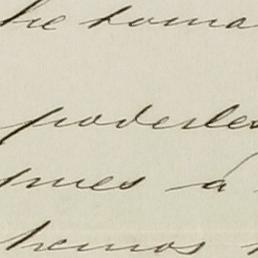 he toma
poderle
pues a
hemos